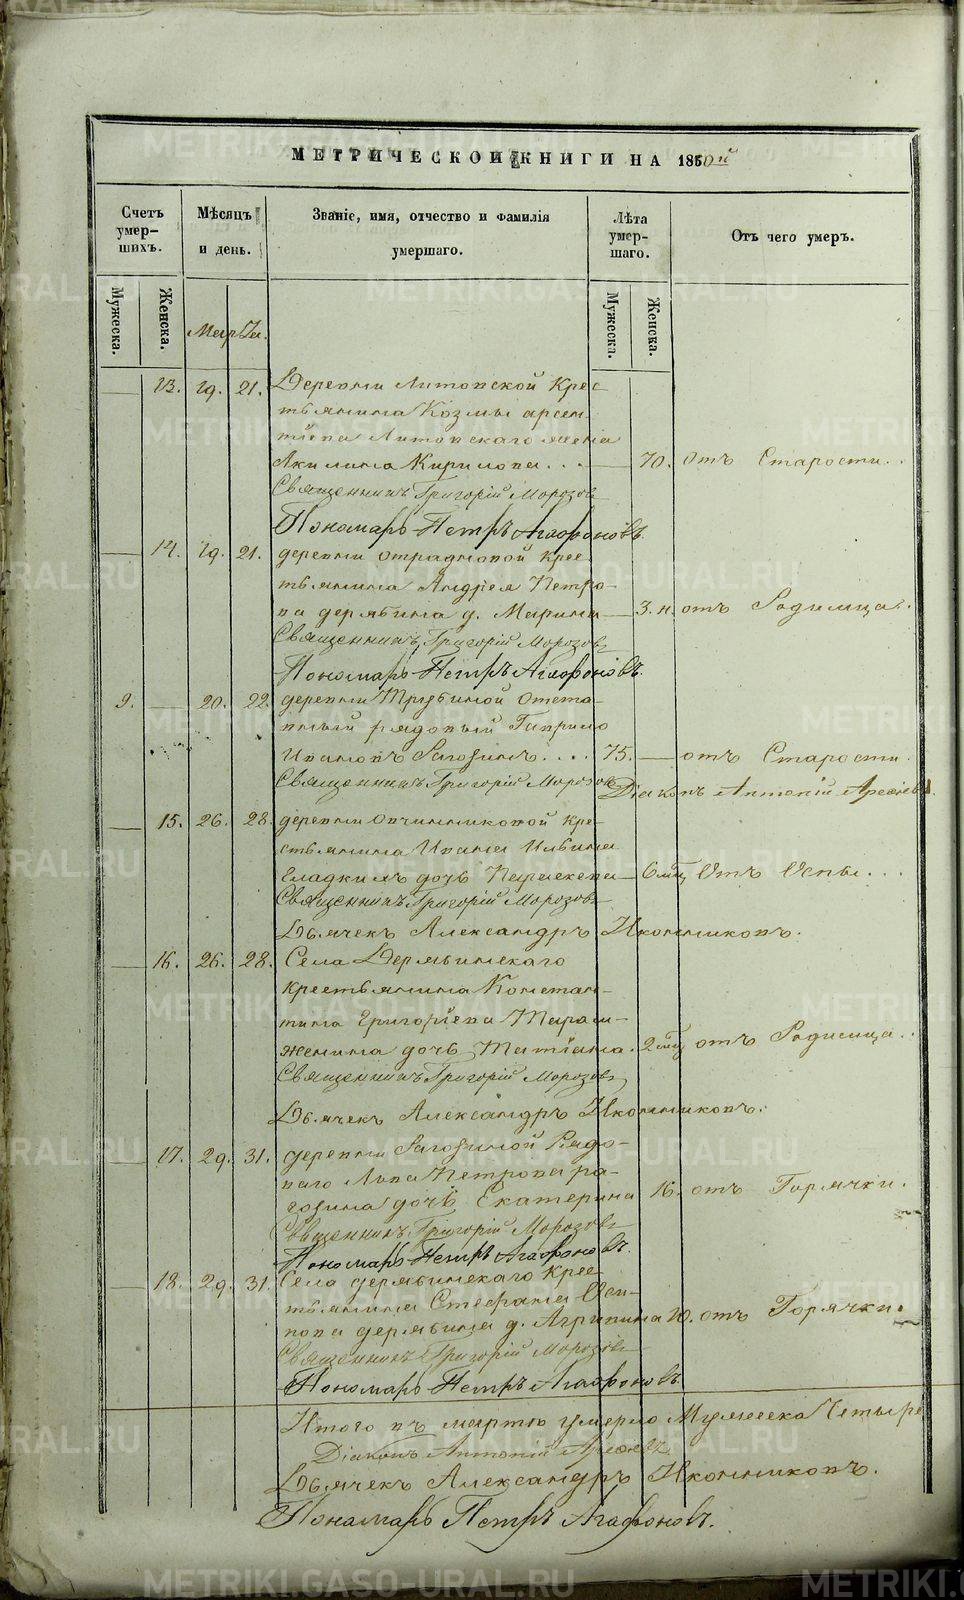 МЕТРИЧЕСКОЙ КНИГИ НА 1850й
Счетъ умер-шихъ.
Мѣсяцъ и день.
Званіе, имя, отчество и фамилія умершаго.
Лѣта умер-шаго.
Отъ чего умеръ.
Мужеска.
Женска.
Мужеска.
Женска.
Марта.
13. 19. 21. Деревни Литовской Крес
тьянина Козмы арсен
тіева Литовскаго жена
Акилина Кирилова... 70. отъ Старости..
Священникъ Григорій Морозовъ
Пономарь Петръ Агафоновъ.
14. 19. 21. деревни отрадновой крес
тьянина Андрея Петро-
ва дерябина д. Марина 3. н. отъ Родимца.
Священникъ Григорій Морозовъ
Пономарь Петръ Агафоновъ.
9. 20. 22. деревни Трубиной Отста-
вный рядовый Гаврило
Ивановъ 75. отъ Старости.
Священникъ Григорій Морозовъ
Діаконъ Антоній
15. 26. 28. деревни Овчинниковой кре-
стьянина Ивана Ильина
Гладкихъ дочь Параскева 6 мц Отъ Оспы...
Священникъ Григорій Морозовъ
Дьячекъ Александръ Иконниковъ.
16. 26. 28. Села Дерябинскаго
крестьянина Констан-
тина Григоріева
дочь Татіана. 2 мц отъ Родимца..
Священникъ Григорій Морозовъ
Дьячекъ Александръ Иконниковъ.
17. 29. 31. деревни Рагозиной Рядо-
ваго Льва Петрова ра-
гозина дочь Екатерина 16. отъ Горячки.
Священникъ Григорій Морозовъ
Пономарь Петръ Агафоновъ.
18. 29. 31. Села дерябинскаго крес
тьянина Стефана Оси-
пова дерябина д. Агрипина 10. отъ Горячки.
Священникъ Григорій Морозовъ
Пономарь Петръ Агафоновъ
Итого въ мартѣ умерло Мужеска Четыре
Діаконъ Антоній
Дьячекъ Александръ Иконниковъ.
Пономарь Петръ Агафоновъ.
METRIKI.GASO-URAL.RU